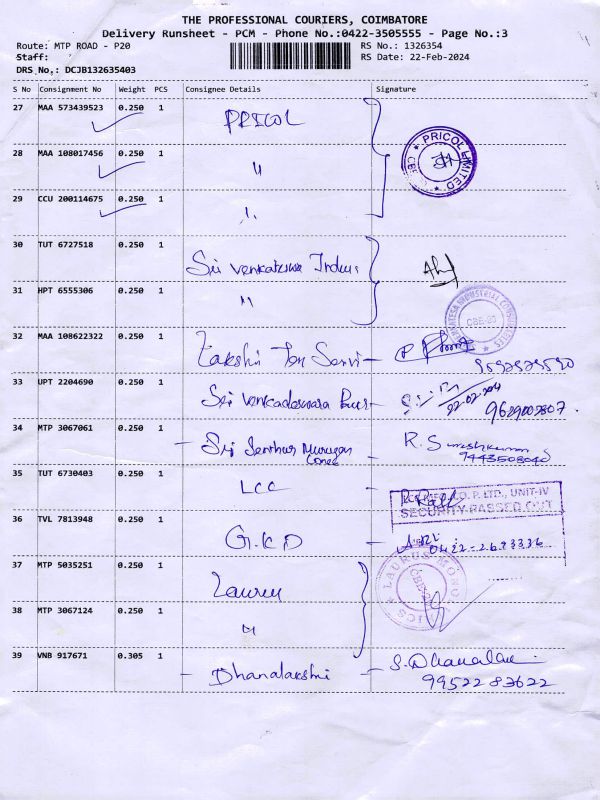 THE PROFESSIONAL COURIERS, COIMBATORE
Delivery Runsheet - PCM - Phone No.:0422-3505555 - Page No.:3
Route: MTP ROAD - P20 RS No.: 1326354
Staff: RS Date: 22-Feb-2024
DRS No.: DCJB132635403
S No Consignment No Weight PCS Consignee Details Signature
27 MAA 573439523 0.250 1 PRICOL
PRICOL LIMITED
28 MAA 108017456 0.250 1 "
29 CCU 200114675 0.250 1 "
30 TUT 6727518 0.250 1 Sri Venkateswa Indus
31 HPT 6555306 0.250 1 "
INDUSTRIAL
CBE-
32 MAA 108622322 0.250 1 Lakshi
33 UPT 2204690 0.250 1 Sri Venkadeswara
22.02.204
9629002807.
34 MTP 3067061 0.250 1 - Sri Senthur Murugan R. Sureshkumar
9443508040
35 TUT 6730403 0.250 1 LCC
CO. P. LTD., UNIT-IV
SECURITY PASSED OUT
36 TVL 7813948 0.250 1 G.K.D
0422-2683336
37 MTP 5035251 0.250 1
LAURUS MONO
38 MTP 3067124 0.250 1 "
39 VNB 917671 0.305 1 - Dhanalakshmi - S. Dhanalak
9952283622